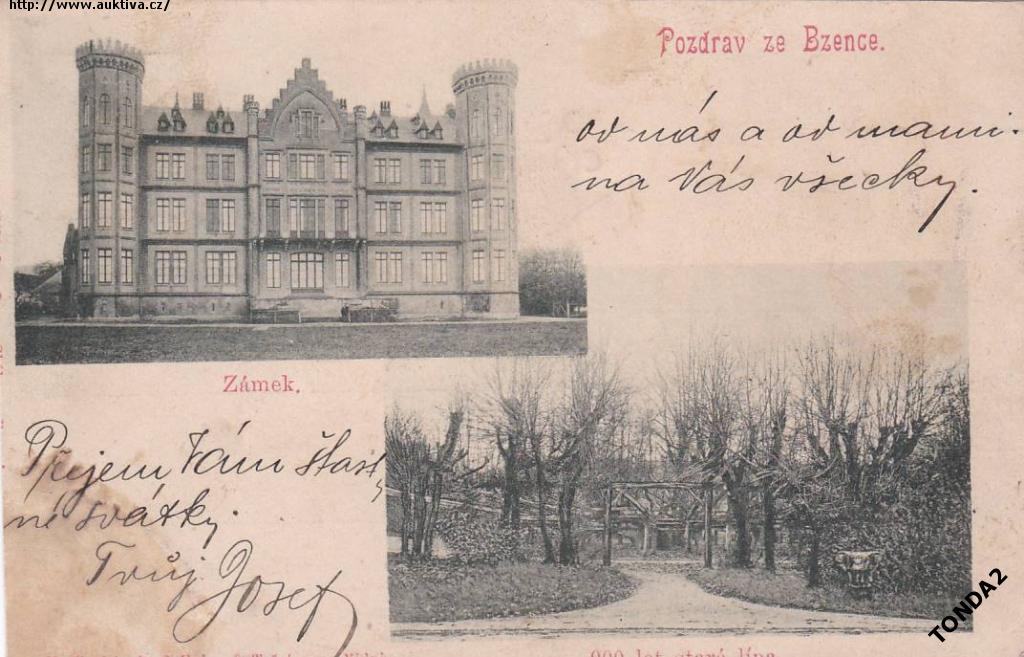 http://www.auktiva.cz/
Pozdrav ze Bzence.
od nás a od mami.
na Vás všecky.
Zámek.
Přejem Vám šťast
né svátky.
Tvůj Josef
900 let stará lípa
TONDA2